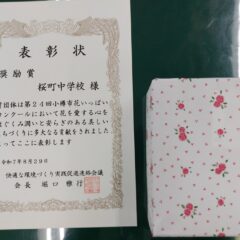 表彰状
奨励賞
桜町中学校 様
団体は第24回小樽市花いっぱい
ンクールにおいて花を愛する心を
はぐくみ潤いと安らぎのある美しい
まちづくりに多大なる貢献をされました
よってここに表彰します
令和7年8月29日
快適な環境づくり実践促進連絡会議
会長 堀口 雅行